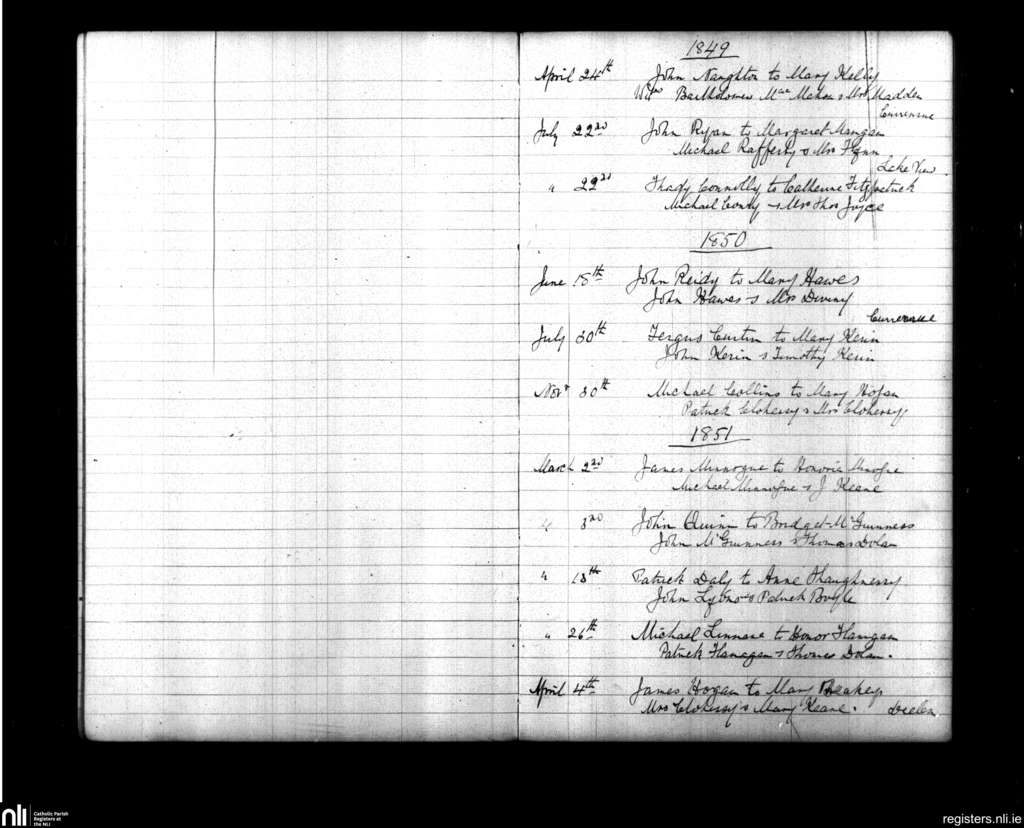 1849
April 24th John Naughton to Mary Kelly
Bartholomew Mac Mahon & Mrs Madden
July 22nd John Ryan to Margaret Mangan
Michael Rafferty & Mrs Flynn
Lake View
" 22nd Thady Connolly to Catherine Fitzpatrick
Michael Conry & Mrs Thos Joyce
1850
June 18th John Reidy to Mary Hawes
John Hawes & Mrs Diviny
July 30th Fergus Curtin to Mary Kerin
John Kerin & Timothy Kerin
Novr 30th Michael Collins to Mary Hogan
Patrick Clohessy & Mrs Clohessy
1851
March 2nd James Minnogue to Honoria Minogue
Michael Minnogue & J Keane
" 3rd John Quinn to Bridget McGuinness
John McGuinness & Thomas Dolan
" 18th Patrick Daly to Anne Shaughnessy
John Lyons & Patrick Boyle
" 26th Michael Linnane to Honor Flanigan
Patrick Flanagan & Thomas Dolan.
April 4th James Hogan to Mary
Mrs Clohessy & Mary Keane.
nli
Catholic Parish
Registers at
the NLI
registers.nli.ie